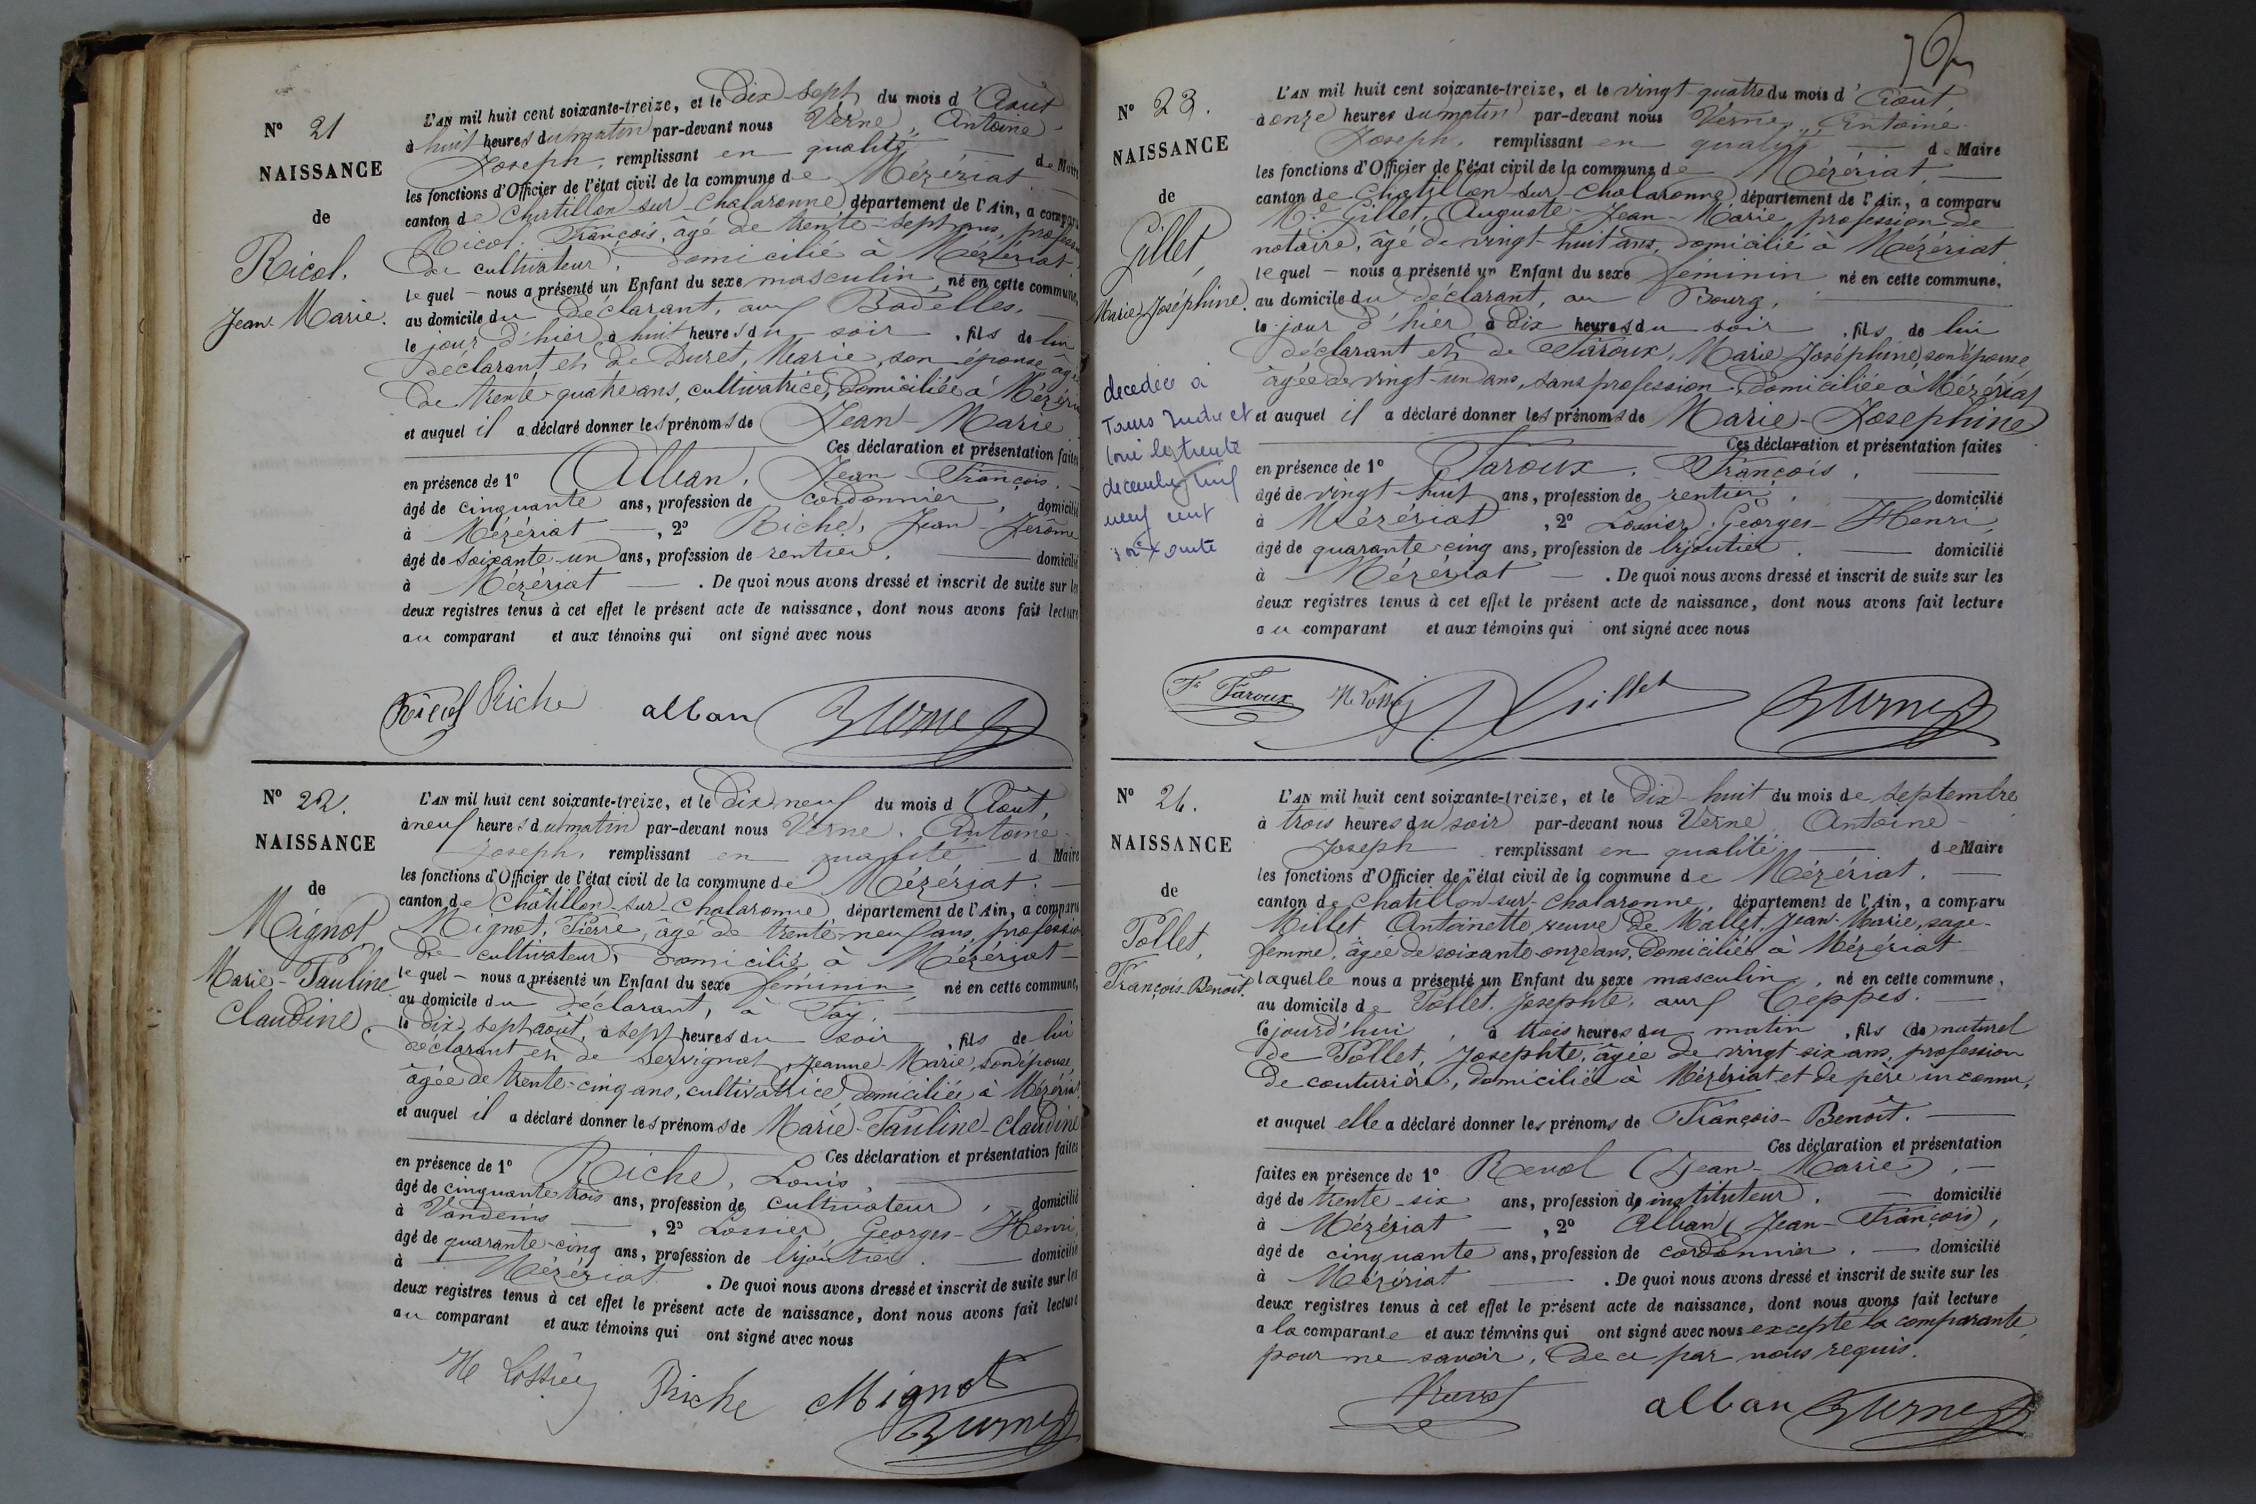 N° 21
NAISSANCE
de
Ricol.
Jean Marie.
L'AN mil huit cent soixante-treize, et le Dix-sept du mois d'Août
à huit heures du matin par-devant nous Verne, Antoine-
Joseph, remplissant en qualité de Maire
les fonctions d'Officier de l'état civil de la commune de Mézériat
canton de Chatillon sur Chalaronne département de l'Ain, a comparu
Ricol, François, âgé de trente-sept ans, profession
de cultivateur, domicilié à Mézériat.
lequel — nous a présenté un Enfant du sexe masculin, né en cette commune,
au domicile du déclarant, aux Badelles.
le jour d'hier à huit heures du soir, fils de lui
déclarant et de Duret, Marie, son épouse, âgée
de trente-quatre ans, cultivatrice, domiciliée à Mézériat
et auquel il a déclaré donner les prénoms de Jean-Marie
Ces déclaration et présentation faites
en présence de 1° Alban, Jean-François.
âgé de cinquante ans, profession de cordonnier, domicilié
à Mézériat —, 2° Riche, Jean-Jérôme
âgé de soixante-un ans, profession de rentier. domicilié
à Mézériat — . De quoi nous avons dressé et inscrit de suite sur les
deux registres tenus à cet effet le présent acte de naissance, dont nous avons fait lecture
au comparant et aux témoins qui ont signé avec nous
Ricol Riche alban Verne
N° 22.
NAISSANCE
de
Mignot
Marie-Pauline
Claudine
L'AN mil huit cent soixante-treize, et le Dix-neuf du mois d'Août,
à neuf heures du matin par-devant nous Verne, Antoine-
Joseph, remplissant en qualité — d Maire
les fonctions d'Officier de l'état civil de la commune de Mézériat. —
canton de Châtillon-sur-Chalaronne département de l'Ain, a comparu
Mignot, Pierre, âgé de trente-neuf ans, profession
de cultivateur, domicilié à Mézériat —
lequel — nous a présenté un Enfant du sexe féminin, né en cette commune,
au domicile du déclarant, à Fay,
le dix-sept août, à sept heures du soir, fils de lui
déclarant et de Servignat, Jeanne-Marie, son épouse,
âgée de trente-cinq ans, cultivatrice, domiciliée à Mézériat
et auquel il a déclaré donner les prénoms de Marie-Pauline-Claudine
Ces déclaration et présentation faites
en présence de 1° Riche, Louis,
âgé de cinquante trois ans, profession de cultivateur, domicilié
à Vandeins —, 2° Lossier, Georges-Henri,
âgé de quarante-cinq ans, profession de bijoutier. — domicilié
à Mézériat . De quoi nous avons dressé et inscrit de suite sur les
deux registres tenus à cet effet le présent acte de naissance, dont nous avons fait lecture
au comparant et aux témoins qui ont signé avec nous
H Lossier Riche Mignot
Verne
N° 23.
NAISSANCE
de
Gillet,
Marie-Joséphine.
decedée à
Tours Indre et
Loire le trente
decembre mil
neuf cent
soixante
L'AN mil huit cent soixante-treize, et le vingt-quatre du mois d'Août,
à onze heures du matin par-devant nous Verne, Antoine-
Joseph, remplissant en qualité — de Maire
les fonctions d'Officier de l'état civil de la commune de Mézériat, —
canton de Chatillon-sur-Chalaronne département de l'Ain, a comparu
Me Gillet, Auguste-Jean-Marie, profession de
notaire, âgé de vingt-huit ans, domicilié à Mézériat
lequel — nous a présenté un Enfant du sexe féminin né en cette commune,
au domicile du déclarant, au Bourg,
le jour d'hier à dix heures du soir, fils de lui
déclarant et de Faroux, Marie Joséphine, son épouse,
âgée de vingt-un ans, sans profession, domiciliée à Mézériat
et auquel il a déclaré donner les prénoms de Marie-Josephine
Ces déclaration et présentation faites
en présence de 1° Faroux, François,
âgé de vingt-huit ans, profession de rentier, — domicilié
à Mézériat, 2° Lossier, Georges-Henri,
âgé de quarante-cinq ans, profession de bijoutier. — domicilié
à Mézériat — . De quoi nous avons dressé et inscrit de suite sur les
deux registres tenus à cet effet le présent acte de naissance, dont nous avons fait lecture
au comparant et aux témoins qui ont signé avec nous
Fs Faroux H Lossier Gillet Verne
N° 24.
NAISSANCE
de
Pollet,
François-Benoît.
L'AN mil huit cent soixante-treize, et le Dix-huit du mois de septembre
à trois heures du soir par-devant nous Verne Antoine-
Joseph remplissant en qualité — de Maire
les fonctions d'Officier de l'état civil de la commune de Mézériat. —
canton de Chatillon-sur-Chalaronne, département de l'Ain, a comparu
Millet Antoinette, veuve de Mallet, Jean-Marie, sage-
femme, âgée de soixante-onze ans, domiciliée à Mézériat
laquelle nous a présenté un Enfant du sexe masculin, né en cette commune,
au domicile de Pollet, Josephte, aux Teppes. —
cejourd'hui, à trois heures du matin, fils de naturel
de Pollet, Josephte, âgée de vingt-six ans, profession
de couturière, domiciliée à Mézériat et de père inconnu,
et auquel elle a déclaré donner les prénoms de François-Benoît. —
Ces déclaration et présentation
faites en présence de 1° Revol (Jean-Marie), —
âgé de trente-six ans, profession de instituteur. — domicilié
à Mézériat —, 2° Alban (Jean-François),
âgé de cinquante ans, profession de cordonnier. — domicilié
à Mézériat — . De quoi nous avons dressé et inscrit de suite sur les
deux registres tenus à cet effet le présent acte de naissance, dont nous avons fait lecture
a la comparante et aux témoins qui ont signé avec nous excepté la comparante
pour ne savoir, de ce par nous requis.
Revol alban Verne